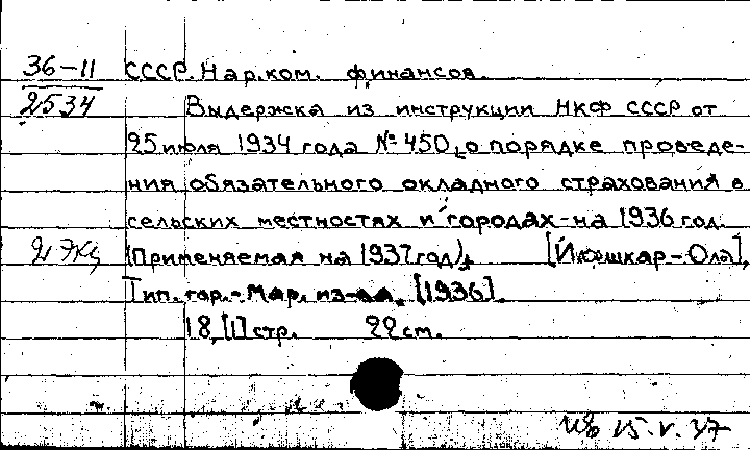 36-11 СССР. Нар.ком. финансов.
2534 Выдержка из инструкции НКФ СССР от
25 июля 1934 года № 450, о порядке проведе-
ния обязательного окладного страхования в
сельских местностях и городах-на 1936 год.
2 экз (Применяемая на 1937 год). [Йошкар-Ола],
Тип. гор.-Мар. из-ва. [1936].
18, [1] стр. 22 см.
15.V.37